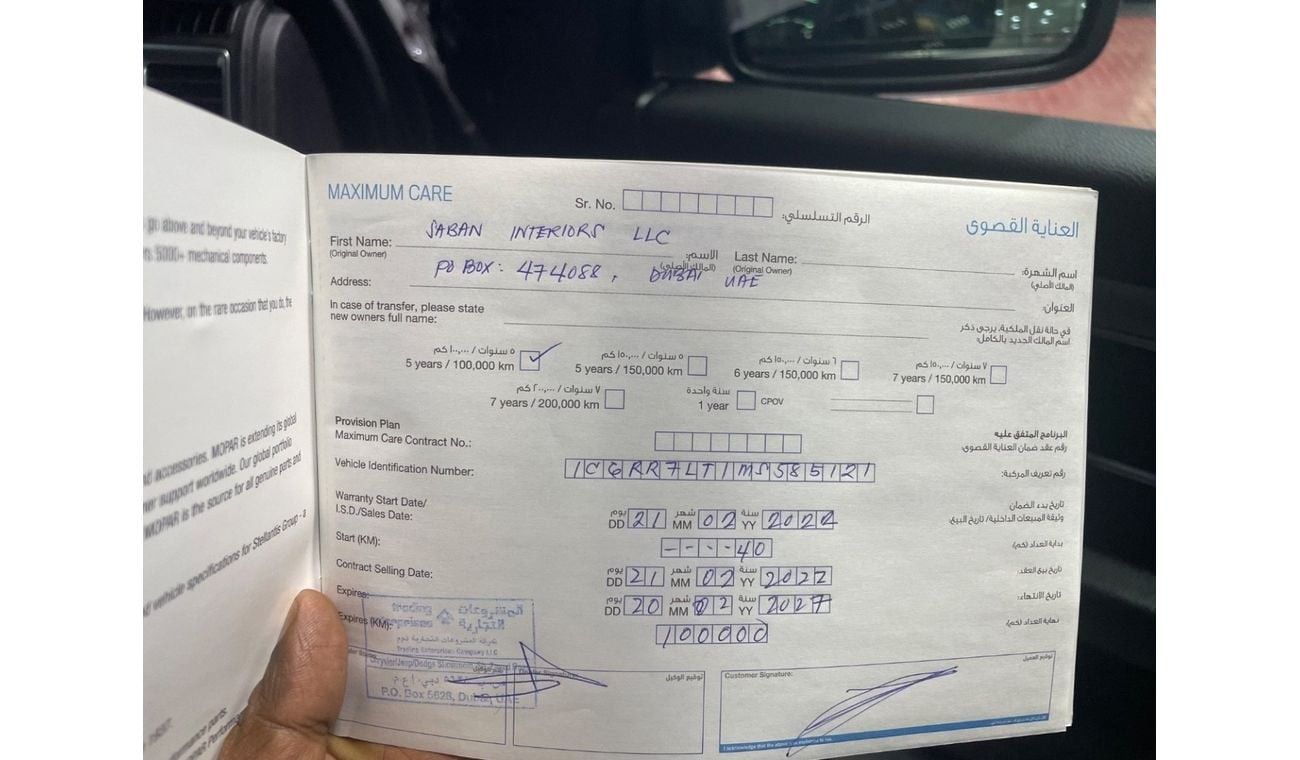 go above and beyond your vehicle's factory
5000+ mechanical components.
However, on the rare occasion that you do, the
accessories. MOPAR is extending its global
support worldwide. Our global portfolio
MOPAR is the source for all genuine parts and
vehicle specifications for Stellantis Group
MAXIMUM CARE
Sr. No. الرقم التسلسلي:
العناية القصوى
SABAN INTERIORS LLC
First Name: الاسم: Last Name: اسم الشهرة:
(Original Owner) (المالك الأصلي) (Original Owner) (المالك الأصلي)
PO BOX: 474088, DUBAI UAE
Address: العنوان:
In case of transfer, please state في حالة نقل الملكية، يرجى ذكر
new owners full name: اسم المالك الجديد بالكامل:
٥ سنوات / ١٠٠,٠٠٠ كم ٥ سنوات / ١٥٠,٠٠٠ كم ٦ سنوات / ١٥٠,٠٠٠ كم ٧ سنوات / ١٥٠,٠٠٠ كم
5 years / 100,000 km ✓ 5 years / 150,000 km 6 years / 150,000 km 7 years / 150,000 km
٧ سنوات / ٢٠٠,٠٠٠ كم سنة واحدة
7 years / 200,000 km 1 year CPOV
Provision Plan البرنامج المتفق عليه
Maximum Care Contract No.: رقم عقد ضمان العناية القصوى:
Vehicle Identification Number: 1C6RR7LT1MS585121 رقم تعريف المركبة:
Warranty Start Date/ تاريخ بدء الضمان
I.S.D./Sales Date: يوم DD 21 شهر MM 02 سنة YY 2022 وثيقة المبيعات الداخلية/ تاريخ البيع:
Start (KM): ----40 بداية العداد (كم):
Contract Selling Date: يوم DD 21 شهر MM 02 سنة YY 2022 تاريخ بيع العقد:
Expires: يوم DD 20 شهر MM 02 سنة YY 2027 تاريخ الانتهاء:
Expires (KM): 100000 نهاية العداد (كم):
trading enterprises
Trading Enterprises Company LLC
Chrysler/Jeep/Dodge
P.O. Box 5628, Dubai, UAE
توقيع الوكيل
Customer Signature: توقيع العميل